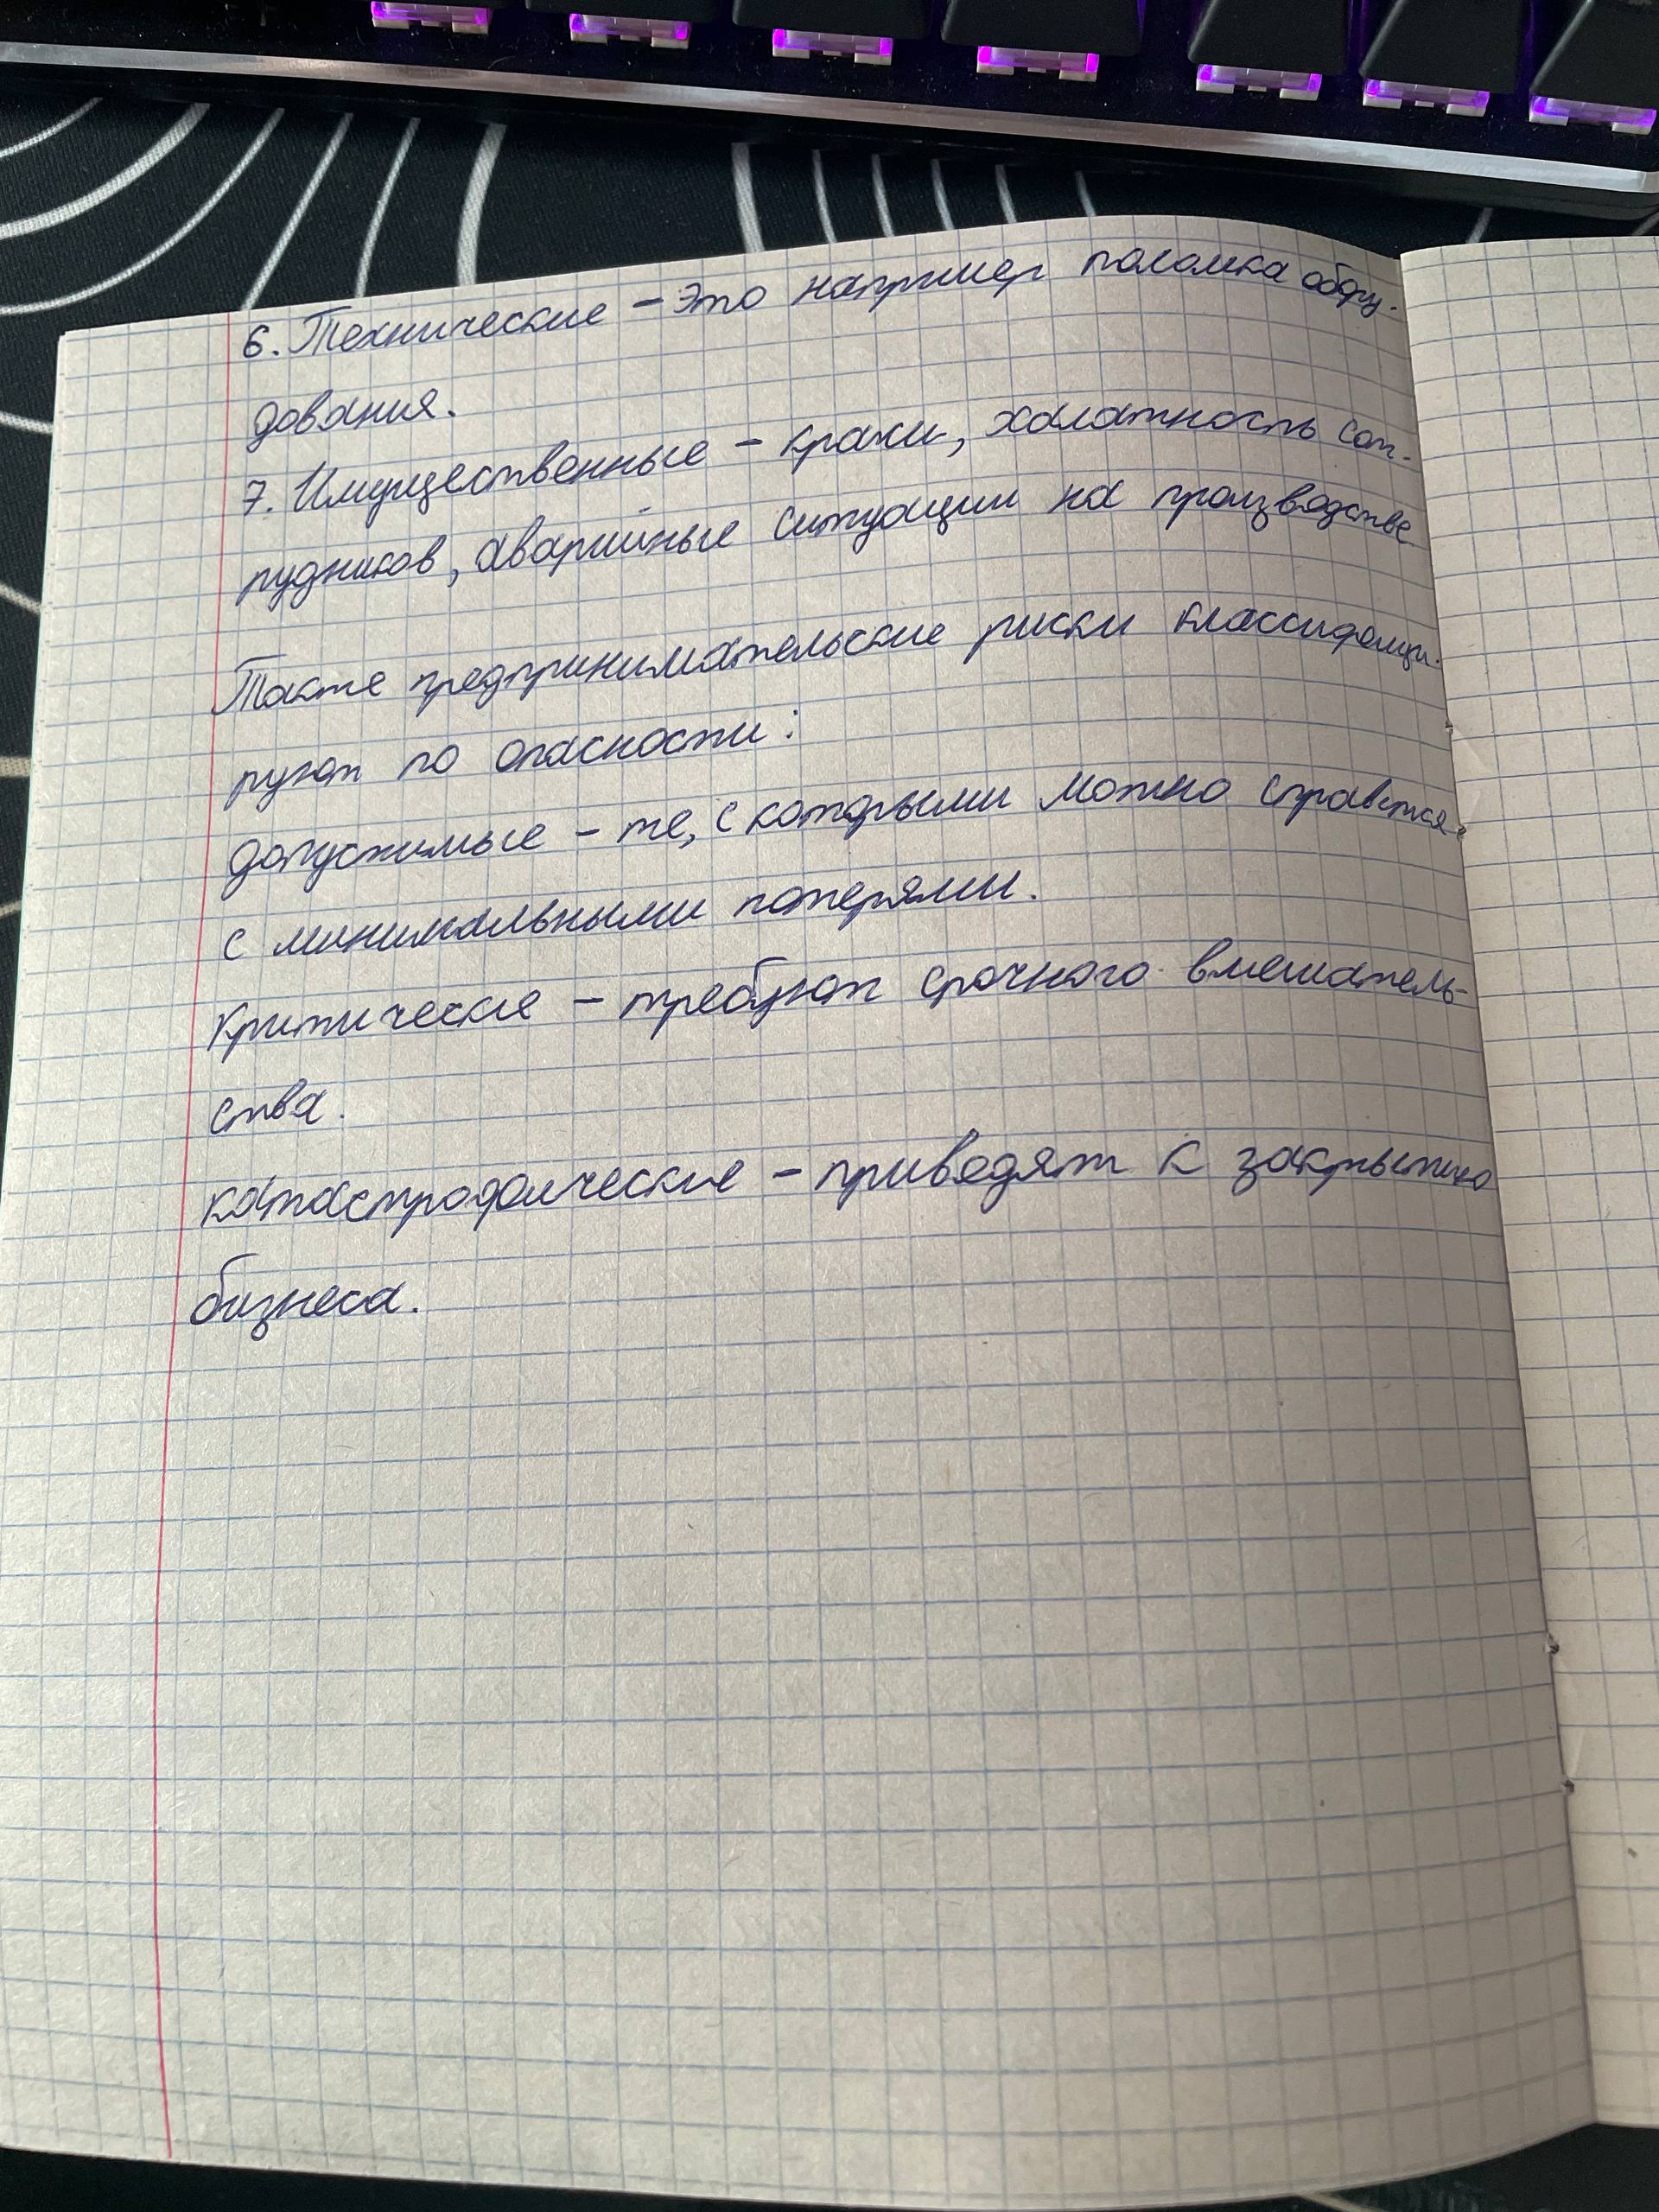 6. Технические - это например поломка обору-
дования.
7. Имущественные - кражи, халатность сот-
рудников, аварийные ситуации на производстве
Также предпринимательские риски классифици-
руют по опасности:
допустимые - те, с которыми можно справится
с минимальными потерями.
критические - требуют срочного вмешатель-
ства.
катастрофические - приводят к закрытию
бизнеса.